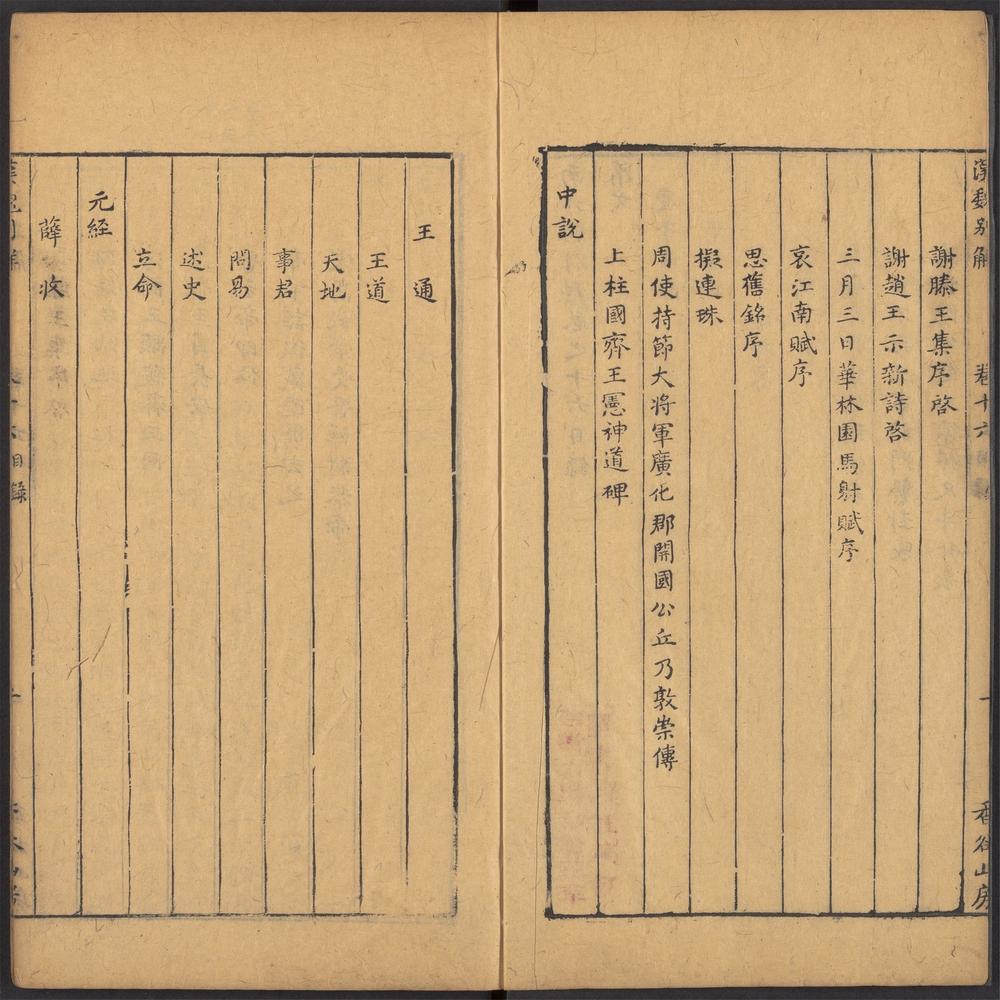 漢魏别解 卷十六目録 一 香谷山房
謝滕王集序啓
謝趙王示新詩啓
三月三日華林園馬射賦序
哀江南賦序
思舊銘序
擬連珠
周使持節大將軍廣化郡開國公丘乃敦崇傳
上柱國齊王憲神道碑
中說
王通
王道
天地
事君
問易
述史
立命
元經
薛收
卷十六目録 一